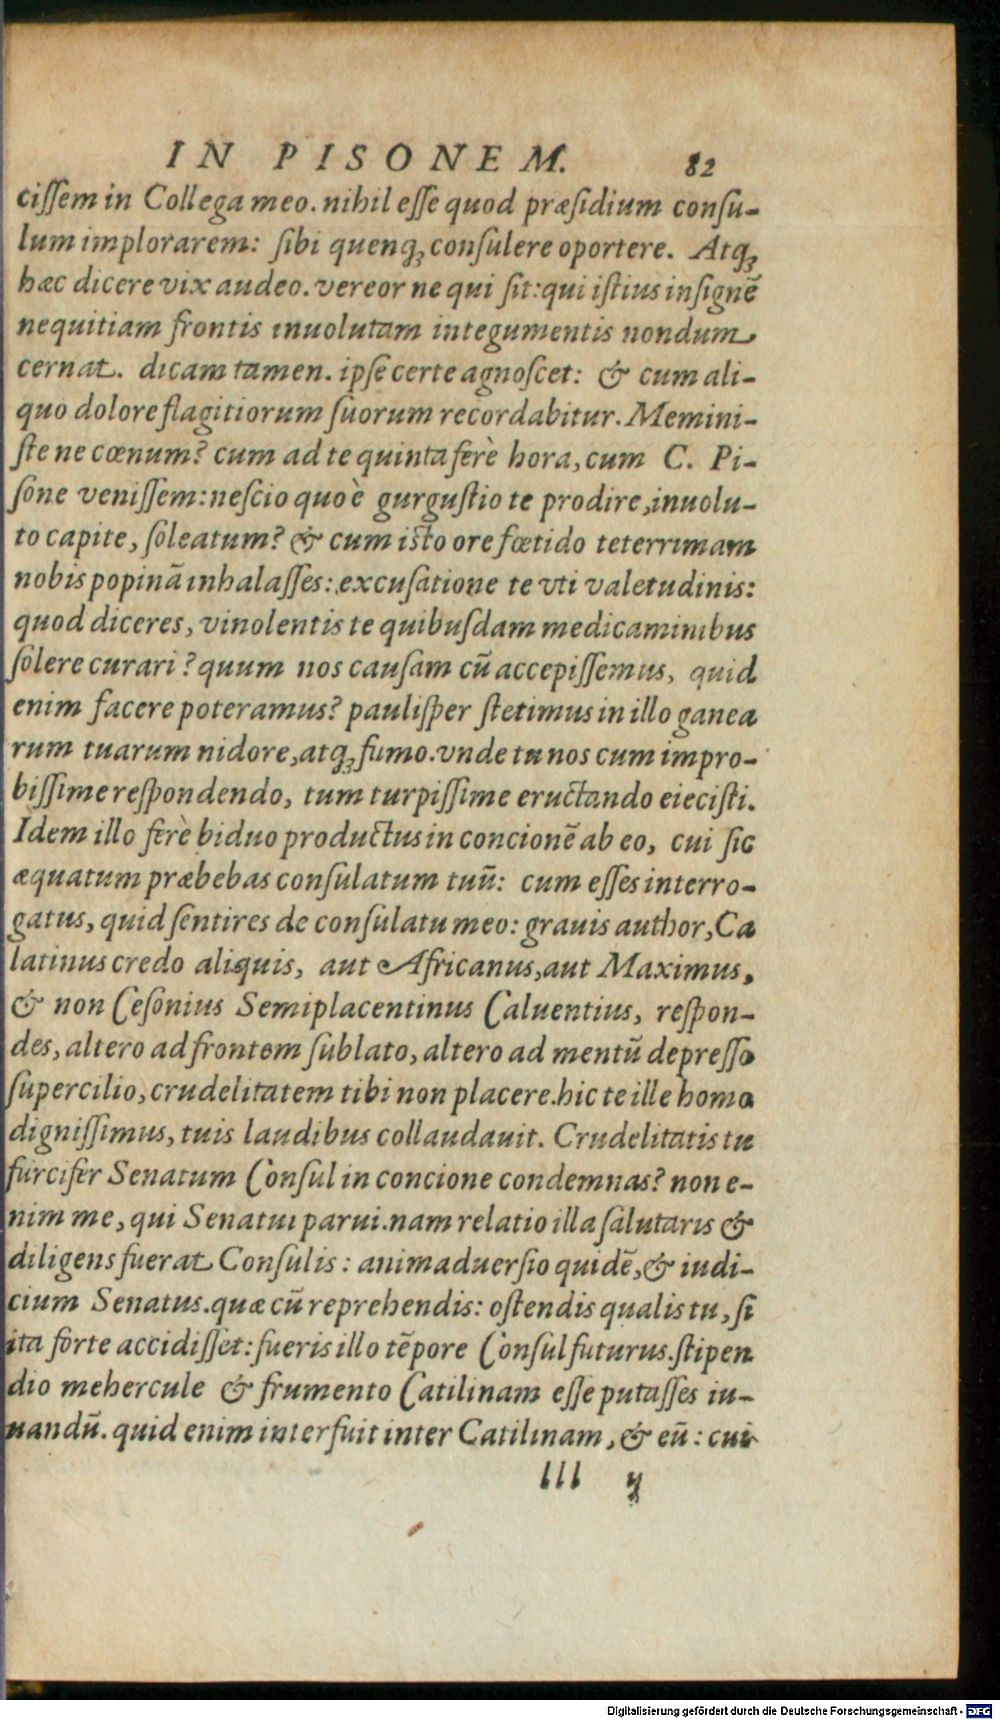 IN PISONEM. 82
cissem in Collega meo. nihil esse quod præsidium consu-
lum implorarem: sibi quenq; consulere oportere. Atq;
hæc dicere vix audeo. vereor ne qui sit: qui istius insignē
nequitiam frontis inuolutam integumentis nondum
cernat. dicam tamen. ipse certe agnoscet: & cum ali-
quo dolore flagitiorum suorum recordabitur. Memini-
ste ne cœnum? cum ad te quinta ferè hora, cum C. Pi-
sone venissem: nescio quo è gurgustio te prodire, inuolu-
to capite, soleatum? & cum isto ore fœtido teterrimam
nobis popinā inhalasses: excusatione te vti valetudinis:
quod diceres, vinolentis te quibusdam medicaminibus
solere curari? quum nos causam cū accepissemus, quid
enim facere poteramus? paulisper stetimus in illo ganea
rum tuarum nidore, atq; fumo. vnde tu nos cum impro-
bissime respondendo, tum turpissime eructando eiecisti.
Idem illo ferè biduo productus in concionē ab eo, cui sic
æquatum præbebas consulatum tuū: cum esses interro-
gatus, quid sentires de consulatu meo: grauis author, Ca
latinus credo aliquis, aut Africanus, aut Maximus,
& non Cesonius Semiplacentinus Caluentius, respon-
des, altero ad frontem sublato, altero ad mentū depresso
supercilio, crudelitatem tibi non placere. hic te ille homo
dignissimus, tuis laudibus collaudauit. Crudelitatis tu
furcifer Senatum Consul in concione condemnas? non e-
nim me, qui Senatui parui. nam relatio illa salutaris &
diligens fuerat Consulis: animaduersio quidē, & iudi-
cium Senatus. quæ cū reprehendis: ostendis qualis tu, si
ita forte accidisset: fueris illo tēpore Consul futurus. stipen
dio mehercule & frumento Catilinam esse putasses iu-
uandū. quid enim interfuit inter Catilinam, & eū: cui
lll ij
Digitalisierung gefördert durch die Deutsche Forschungsgemeinschaft - DFG